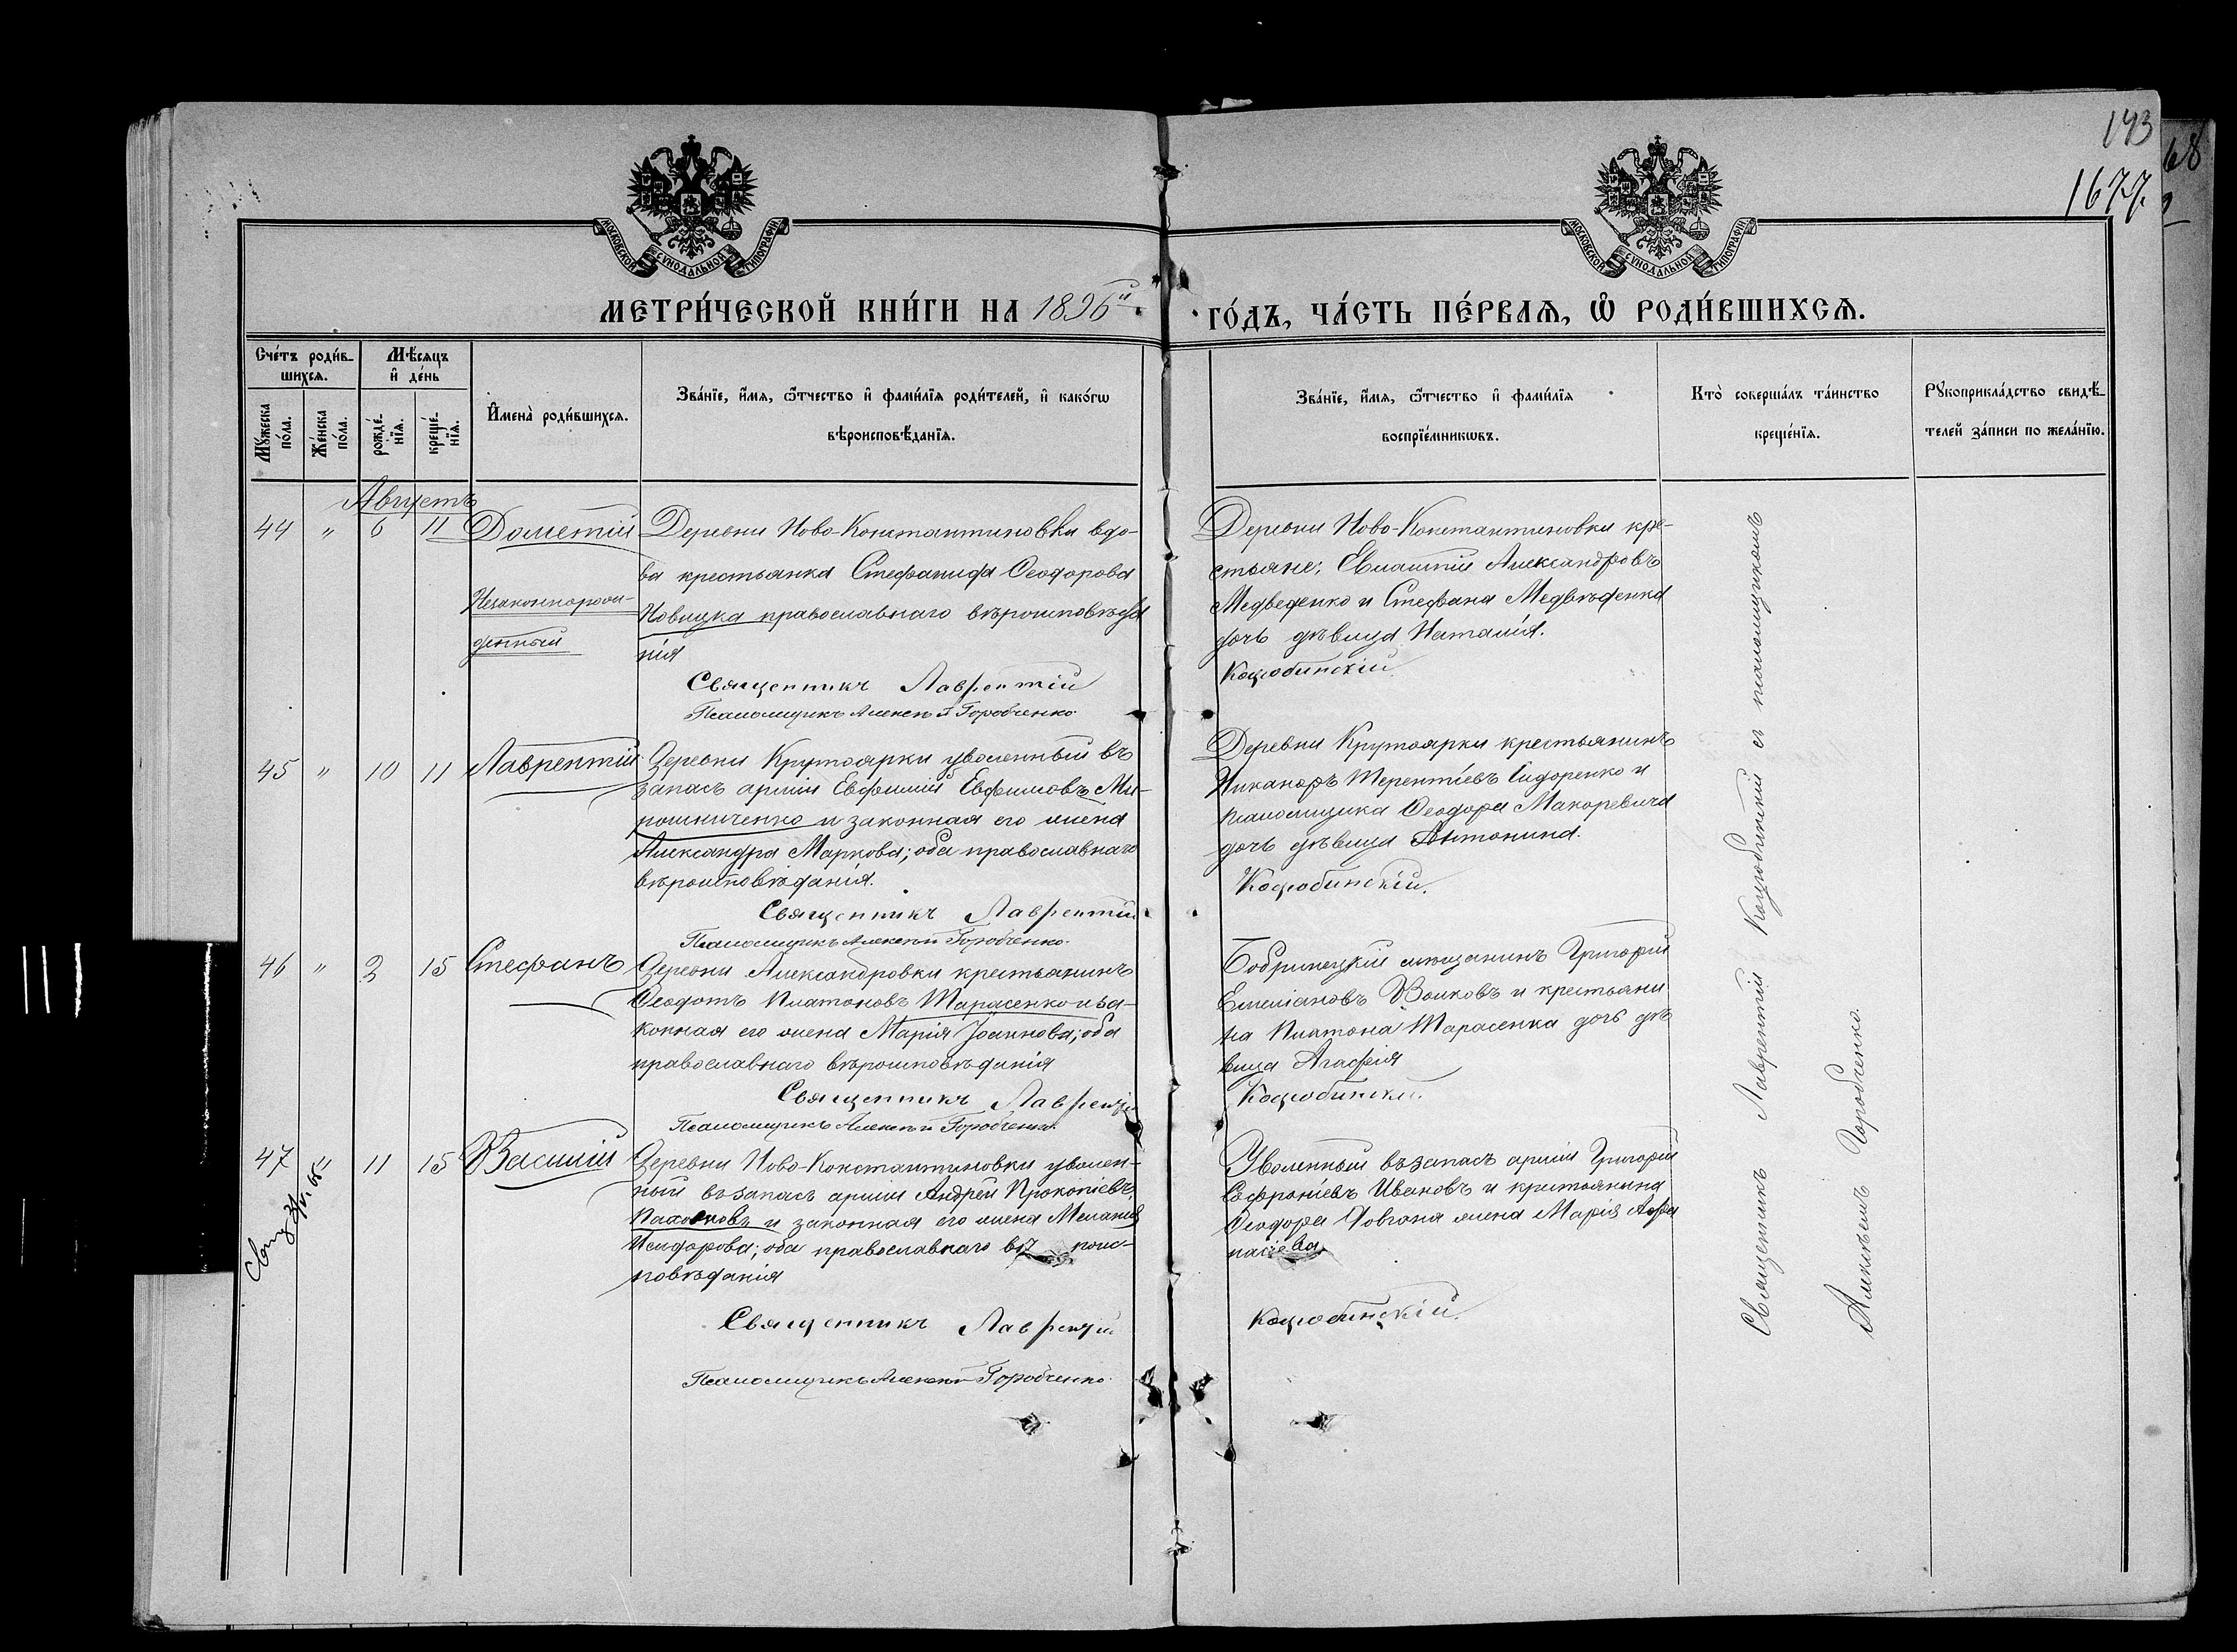 143
1677.
68
МОСКОВСКОЙ СУНОДАЛЬНОЙ ТИПОГРАФІИ
МОСКОВСКОЙ СУНОДАЛЬНОЙ ТИПОГРАФІИ
МЕТРИ́ЧЕСКОЙ КНИ́ГИ НА 1896й
ГО́ДЪ, ЧА́СТЬ ПЕ́РВАѦ, Ѽ РОДИ́ВШИХСѦ.
Сче́тъ роди́в-
шихсѧ.
Мѣ́сяцъ
и҆ де́нь
Мꙋ́жеска
по́ла.
Же́нска
по́ла.
рожде́-
нїѧ.
креще́-
нїѧ.
И҆мена̀ роди́вшихсѧ.
Зва́нїе, и҆́мѧ, ѻ҆́тчество и҆ фами́лїѧ роди́телей, и҆ како́гѡ
вѣроисповѣ́данїѧ.
Зва́нїе, и҆́мѧ, ѻ҆́тчество и҆ фами́лїѧ
воспрїе́мникѡвъ.
Кто̀ соверша́лъ та́инство
креще́нїѧ.
Рꙋкоприкла́дство свидѣ́-
телей за́писи по жела́нїю.
Августъ
44 " 6 11 Дометій
Незаконнорож-
денный
Деревни Ново-Константиновки вдо-
ва крестьянка Стефанида Ѳеодорова
Новицка православнаго вѣроисповѣда
нія
Священникъ Лаврентій
Псаломщикъ Алексѣй Горобченко.
Деревни Ново-Константиновки кре-
стьяне: Евлампій Александровъ
Медведенко и Стефана Медвѣденка
дочь дѣвица Наталія.
Коцюбинскій.
45 " 10 11 Лаврентій
Деревни Крутоярки уволенный въ
запасъ арміи Евфимій Евфимовъ Ми-
рошниченко и законная его жена
Александра Маркова; оба православнаго
вѣроисповѣданія.
Священникъ Лаврентій
Псаломщикъ Алексѣй Горобченко.
Деревни Крутоярки крестьянинъ
Никаноръ Терентіевъ Сидоренко и
псаломщика Ѳеодора Макаревича
дочь дѣвица Антонина.
Коцюбинскій.
46 " 2 15 Стефанъ
Деревни Александровки крестьянинъ
Ѳеодотъ Платоновъ Тарасенко и за-
конная его жена Марія Іоаннова; оба
православнаго вѣроисповѣданія
Священникъ Лаврентій
Псаломщикъ Алексѣй Горобченко.
Бобринецкій мѣщанинъ Григорій
Емеліановъ Волковъ и крестьяни
на Платона Тарасенка дочь дѣ
вица Агафія
Коцюбинскій.
47 " 11 15 Василій
Деревни Ново-Константиновки уволен-
ный въ запасъ арміи Андрей Прокопіевъ
Пахомовъ и законная его жена Меланія
Исидорова; оба православнаго вѣроис-
повѣданія
Священникъ Лаврентій
Псаломщикъ Алексѣй Горобченко.
Уволенный въ запасъ арміи Григорій
Софроніевъ Ивановъ и крестьянина
Ѳеодора Довгана жена Марія Аѳа
насіева
Коцюбинскій.
Священникъ Лаврентій Коцюбинскій съ псаломщикомъ
Алексѣемъ Горобченко.